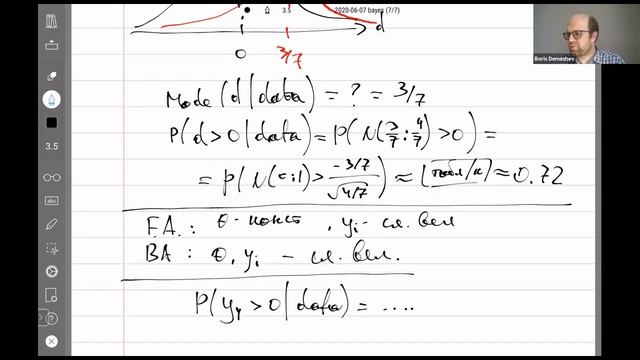 3.5
2020-06-07 bayes (7/7)
d
0
3/7
Boris Demeshev
Mode(d|data) = ? = 3/7
P(d>0|data) = P(N(3/7; 4/7) > 0) =
= P(N(0;1) > -3/7 / √4/7) ≈ [табл/к] ≈ 0.72
F.A.: θ - конст, yᵢ - сл. вел
BA: θ, yᵢ - сл. вел.
P(y₄>0|data) = ....
3.5
abc
/?